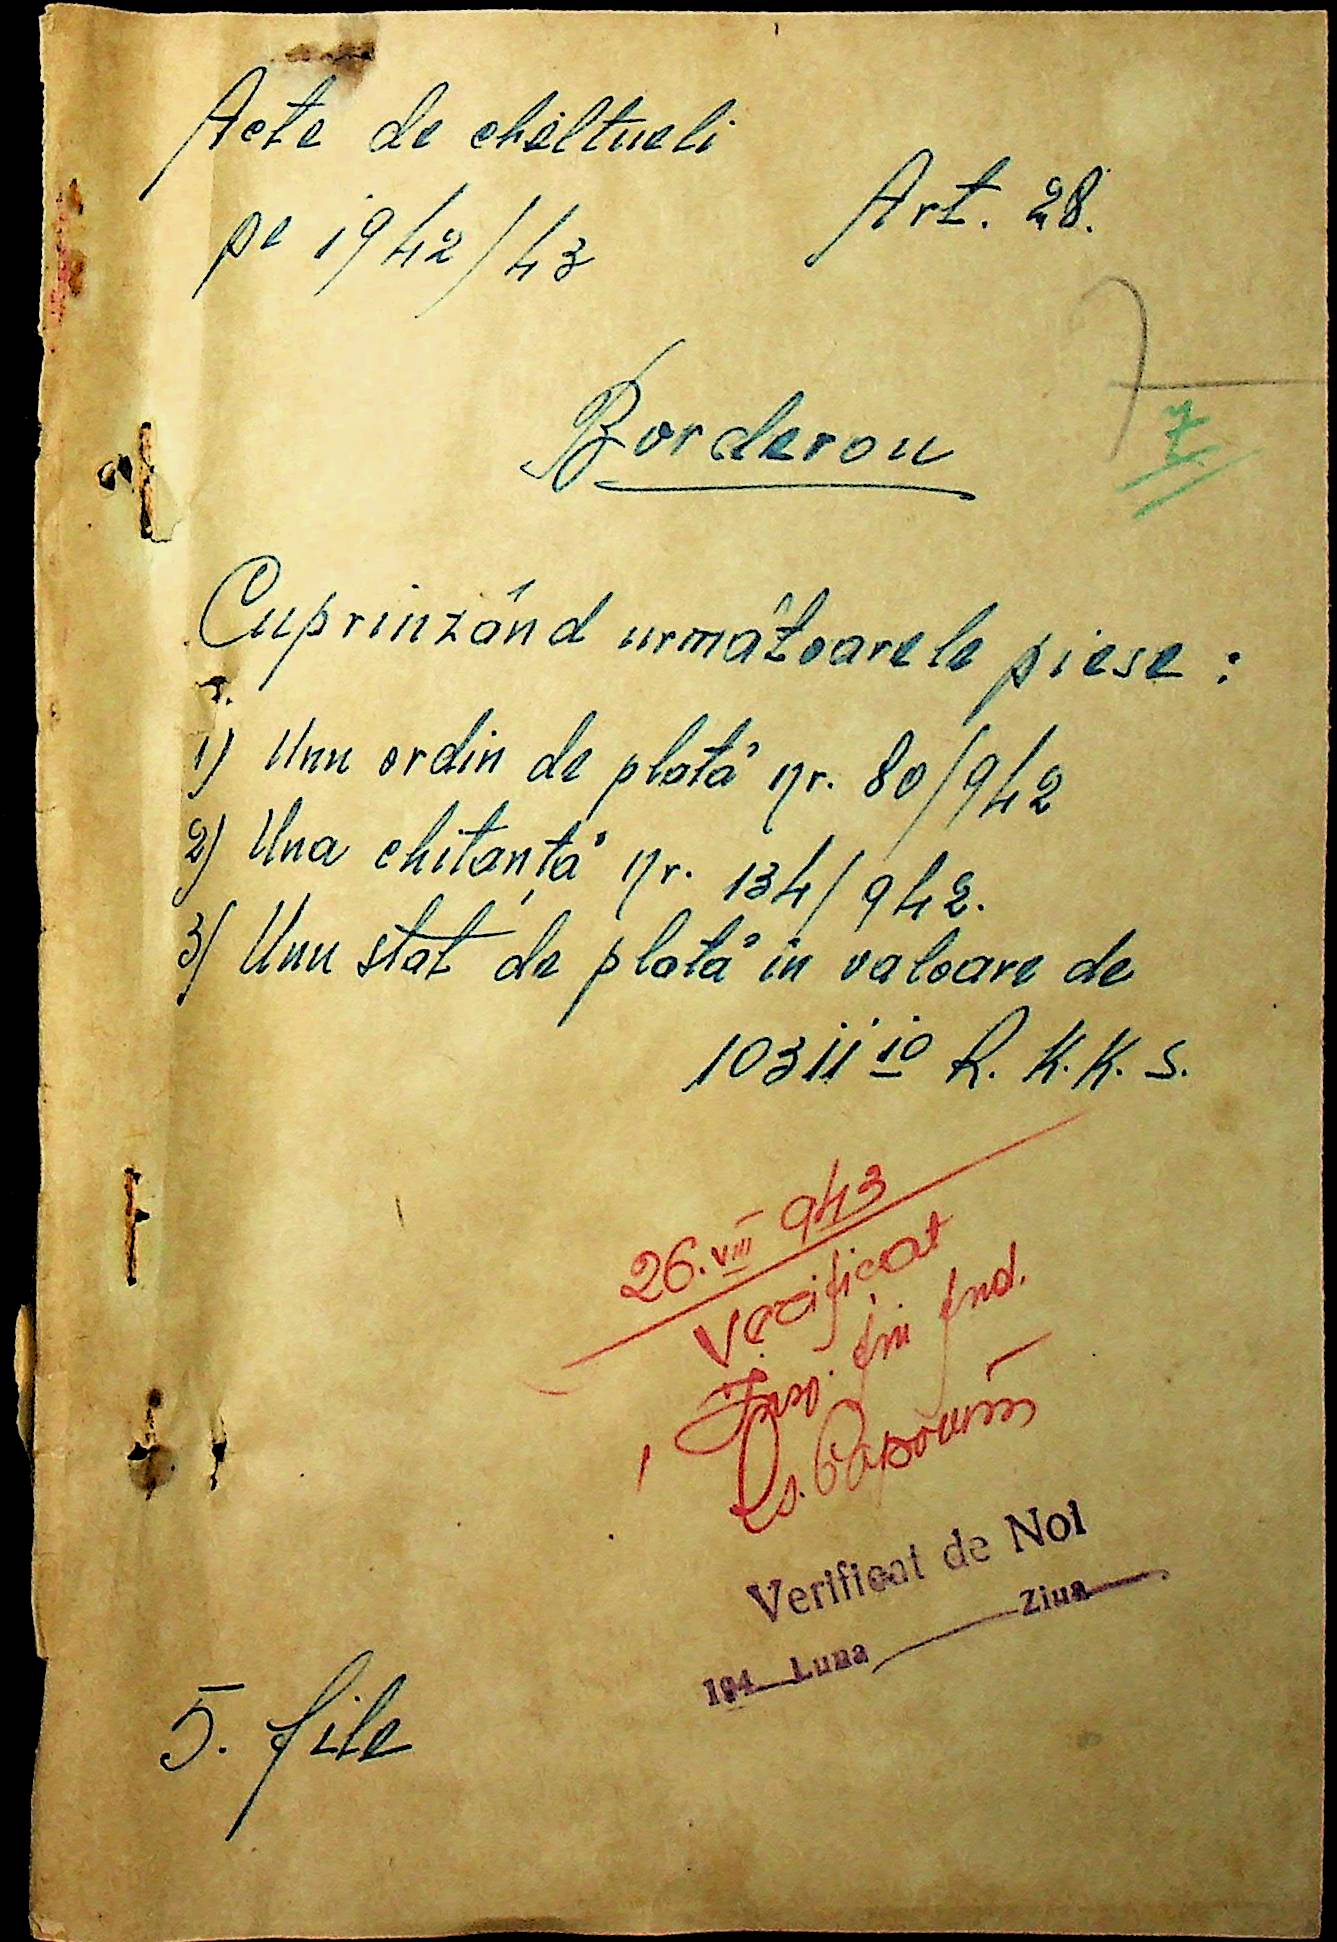 Acte de cheltueli
pe 1942/43
Art. 28.
7
7
Borderou
Cuprinzând următoarele piese :
1) Unu ordin de plată nr. 80/942
2) Una chitanță nr. 134/942.
3) Unu stat de plată in valoare de
10311 10 R. K. K. S.
26.VIII 943
Verificat
Verificat de Noi
194 Luna Ziua
5. file